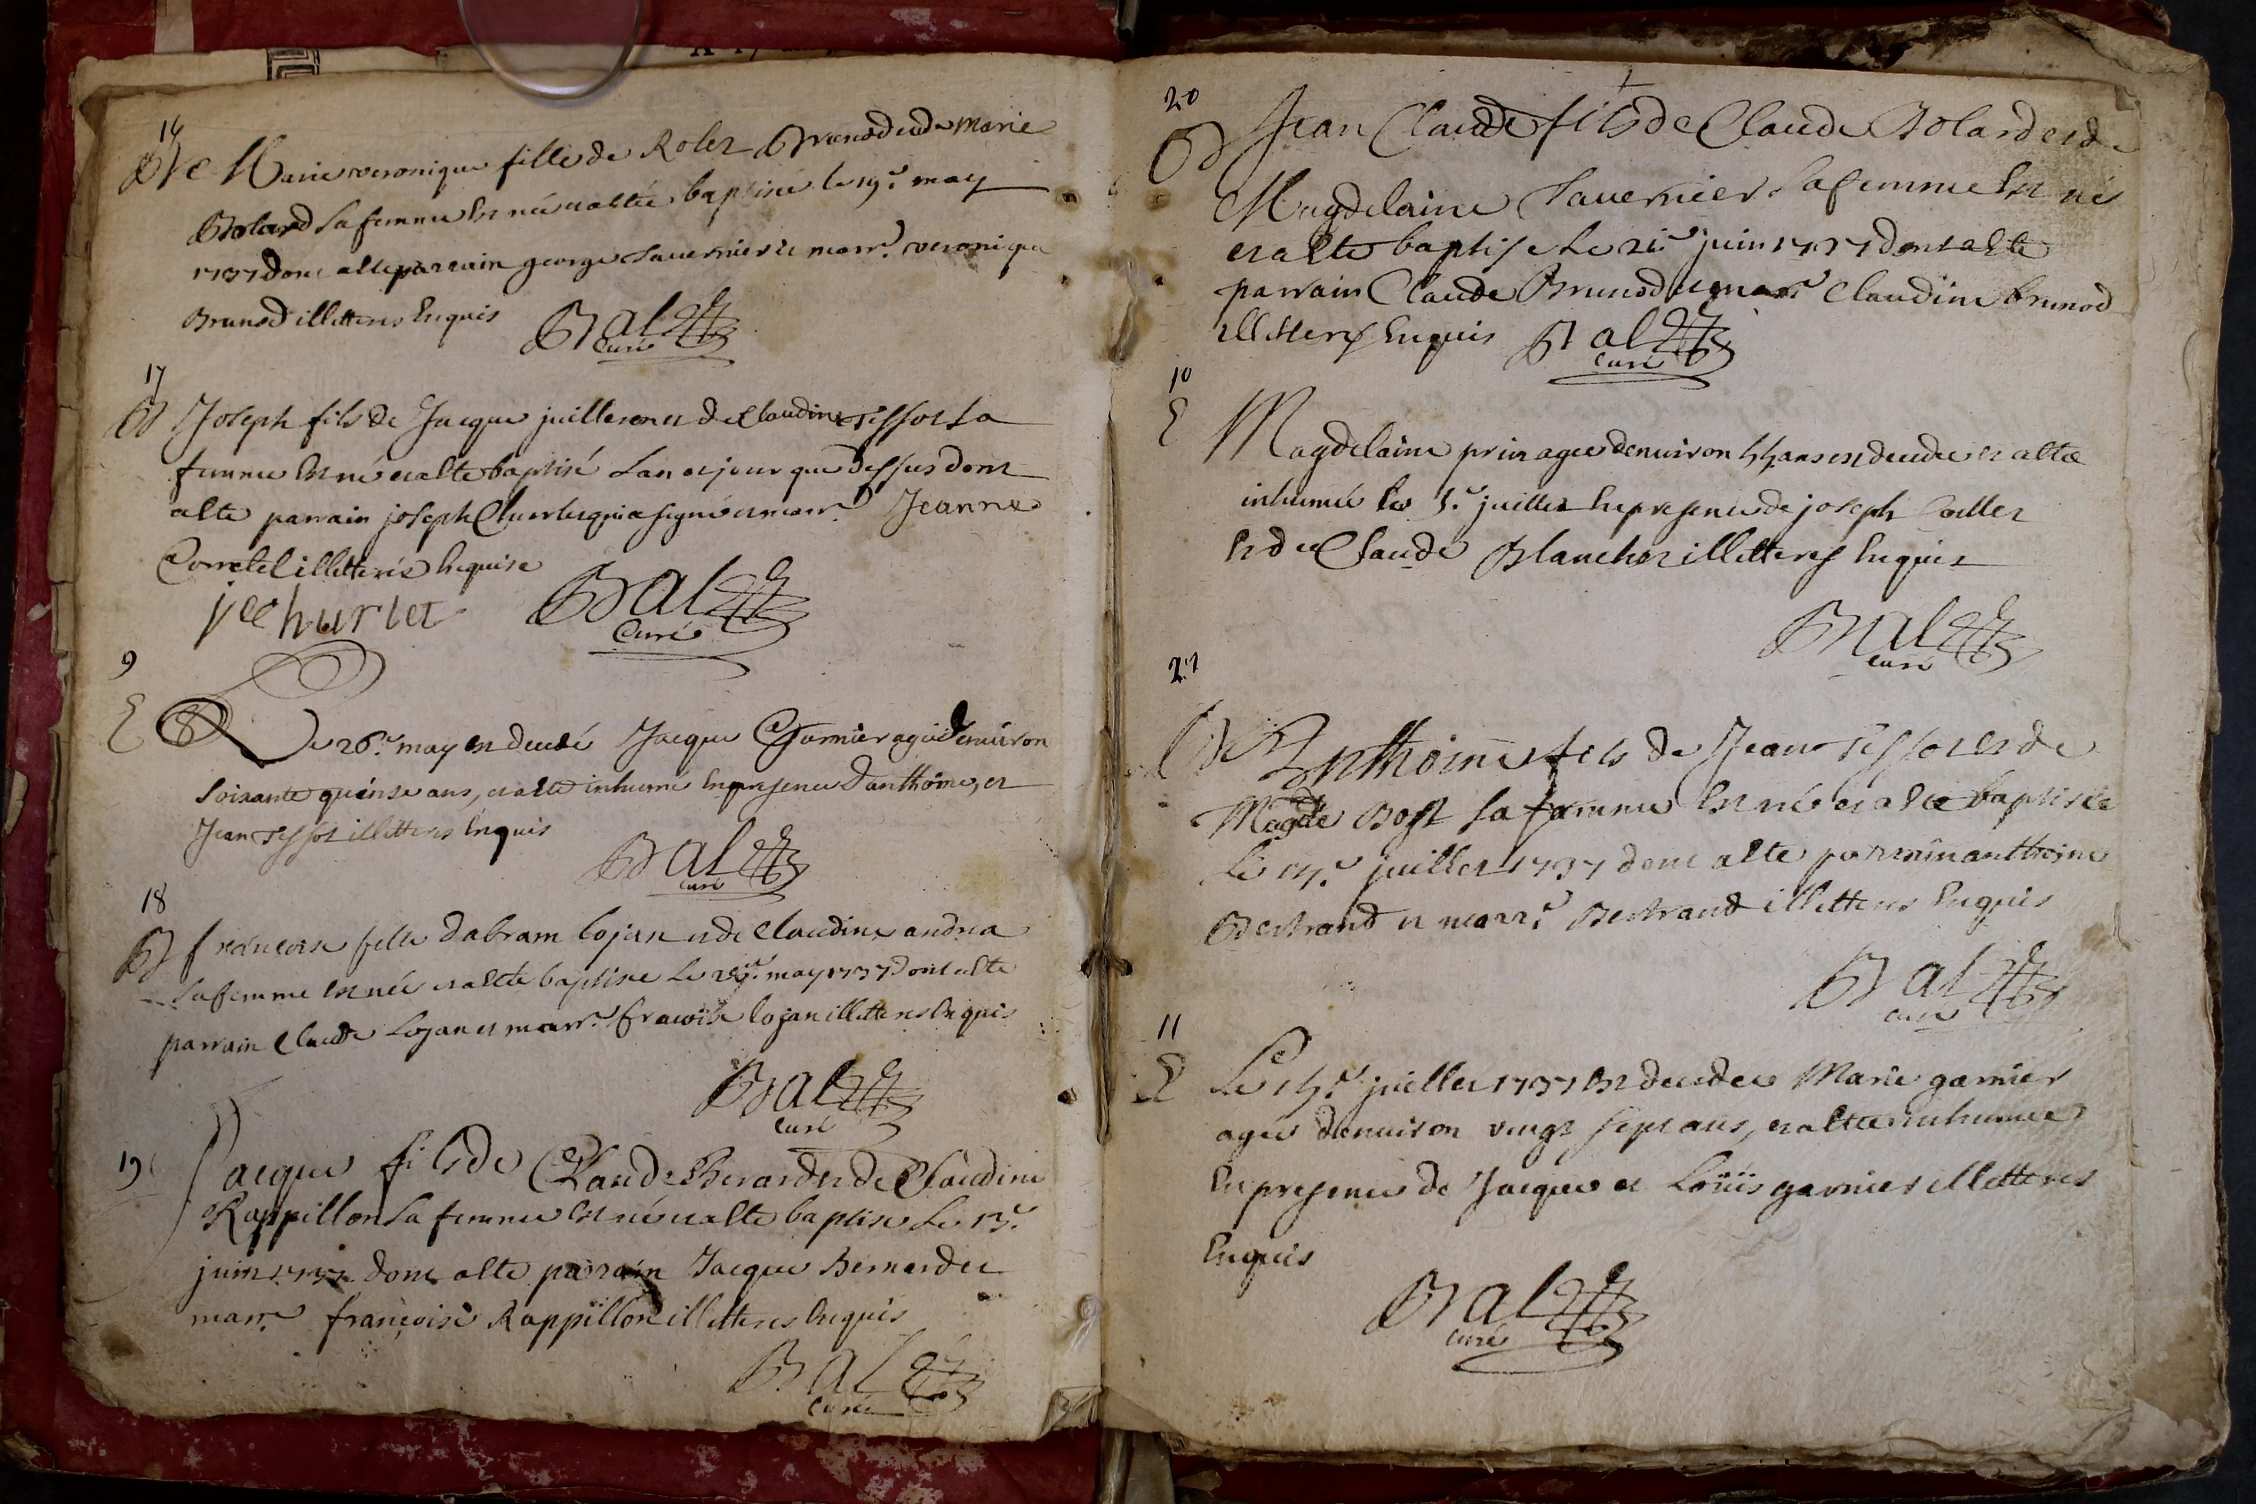 16
B Marie veronique fille de Rolet Brunod et de Marie
Bolard sa femme Est née et a été baptisée le 19.e may
1737 dont a été parrain george Tavernier et marr.e veronique
Brunod illitteres Enquis Bal
Curé
17
B Joseph fils de Jacque juilleron et de Claudine Tissot sa
femme Est né et a été baptisé L'an et jour que dessus dont
a été parrain joseph Churlet qui a signé et marr.e Jeanne
Corretel illitterée Enquise
j churlet Bal
Curé
9
E Le 26.e may Est decedé Jacque Garnier agé d'environ
soixante quinse ans, et a été inhumé En presence d'anthoine, et
Jean Tissot illitteres Enquis
Bal
Curé
18
B francoise fille d'abram lojan et de Claudine andrea
sa femme Est née et a été baptisée Le may 1737 dont a été
parrain Claude Lojan et marr.e francoise lojan illitteres Enquis
Bal
Curé
19 Jacque fils de Claude Berard et de Claudine
Rappillon sa femme Est né et a été baptisé Le 13.e
juin 1737 dont a été parrain Jacque Bernard et
marr.e françoise Rappillon illitteres Enquis
Bal
Curé
20
B Jean Claude fils de Claude Bolard et de
Magdelaine Tavernier sa femme Est né
et a été baptisé Le 21.e juin 1737 dont a été
parrain Claude Brunod et marr.e Claudine brunod
illitteres Enquis Bal
Curé
10
E Magdelaine agée denviron ans est decedée et a été
inhumée Le 5.e juillet En presence de joseph
Et de Claude Blanchet illitteres Enquis
Bal
Curé
21
B Anthoine fils de Jean Tissot et de
Magde sa femme Est né et a été baptisé
Le juillet 1737 dont a été parrain anthoine
Bertrand et marr.e Bertrand illitteres Enquis
Bal
Curé
11
E Le 15.e juillet 1737 Est decedée Marie garnier
agée denviron vingt sept ans, et a été inhumée
En presence de Jacque et Loüis garnier illitteres
Enquis
Bal
Curé